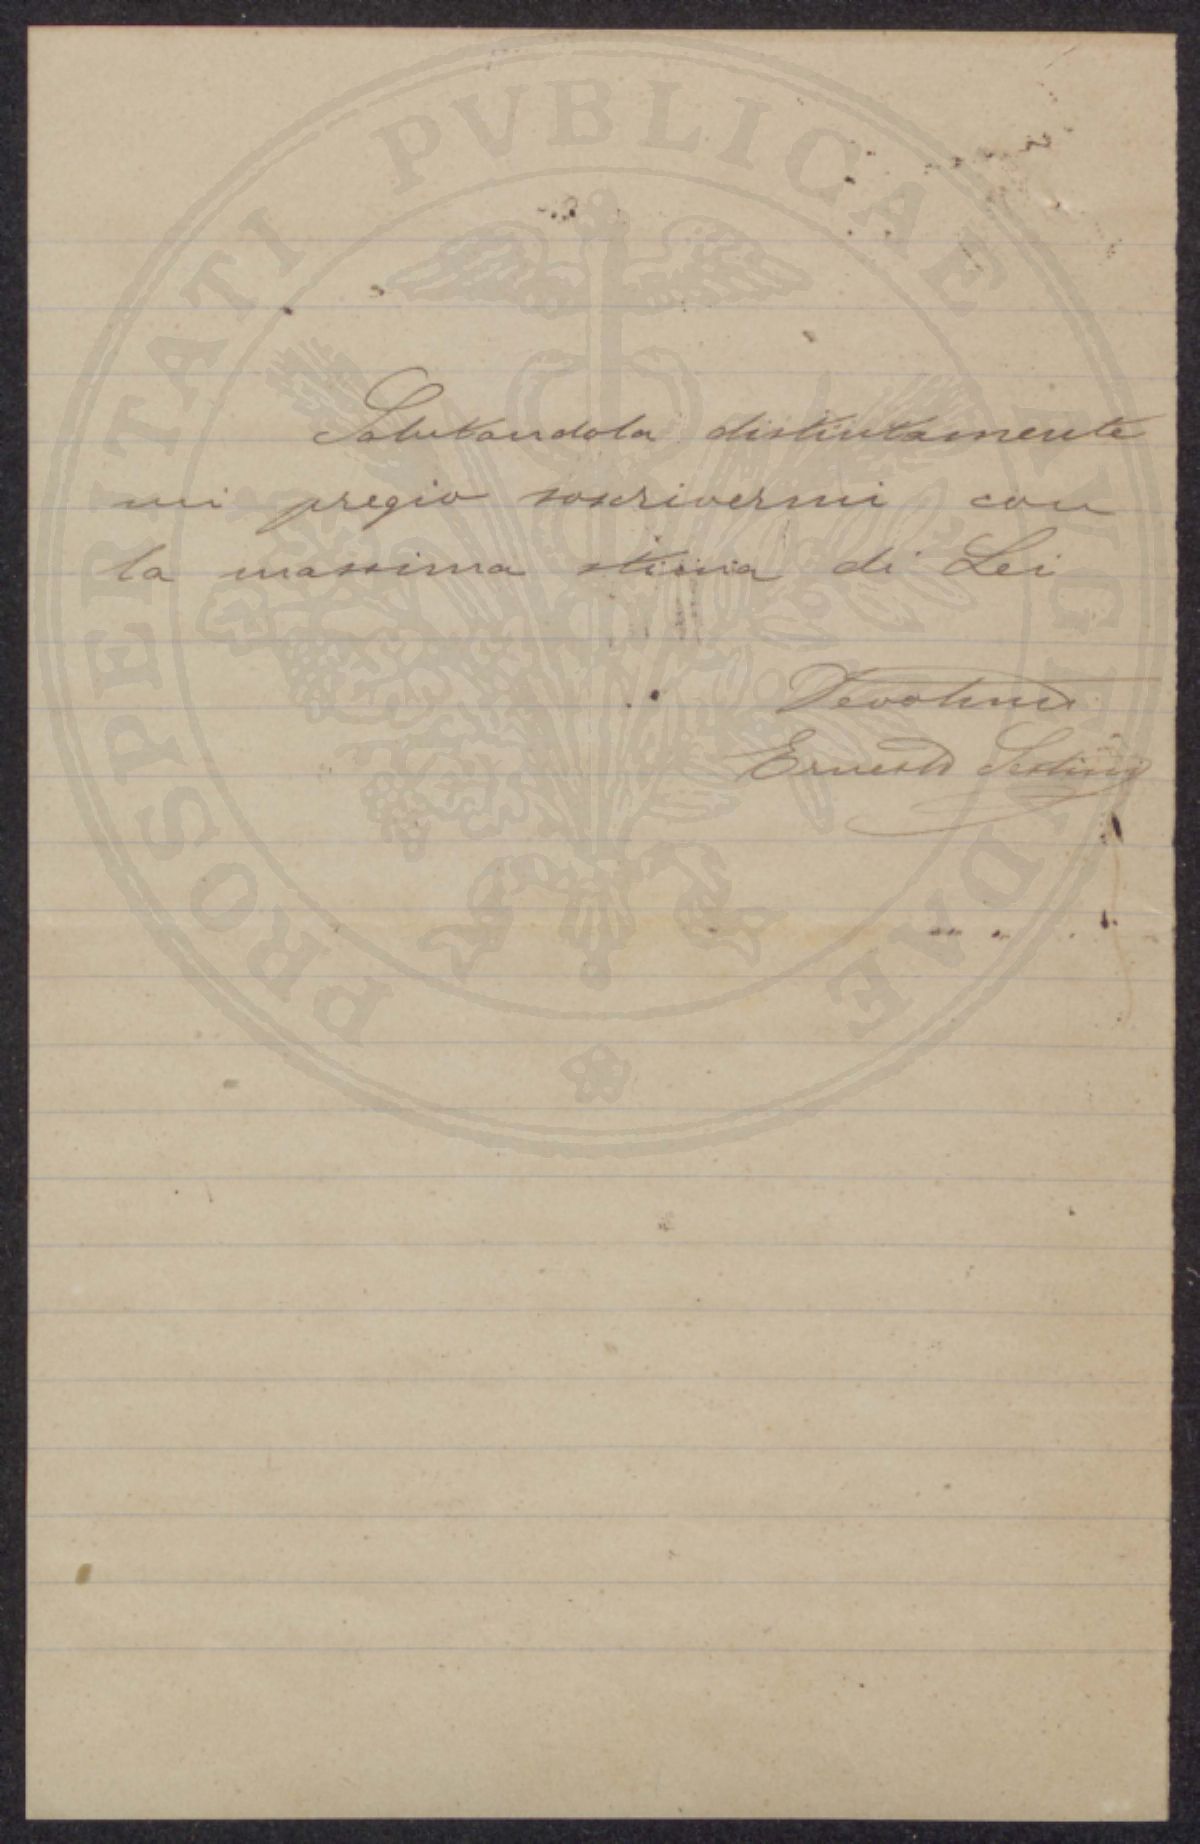 PROSPERITATI PVBLICAE AVGENDAE
Salutandola distintamente
mi pregio soscrivermi con
la massima stima di Lei
Devotmo
Ernesto Sestini